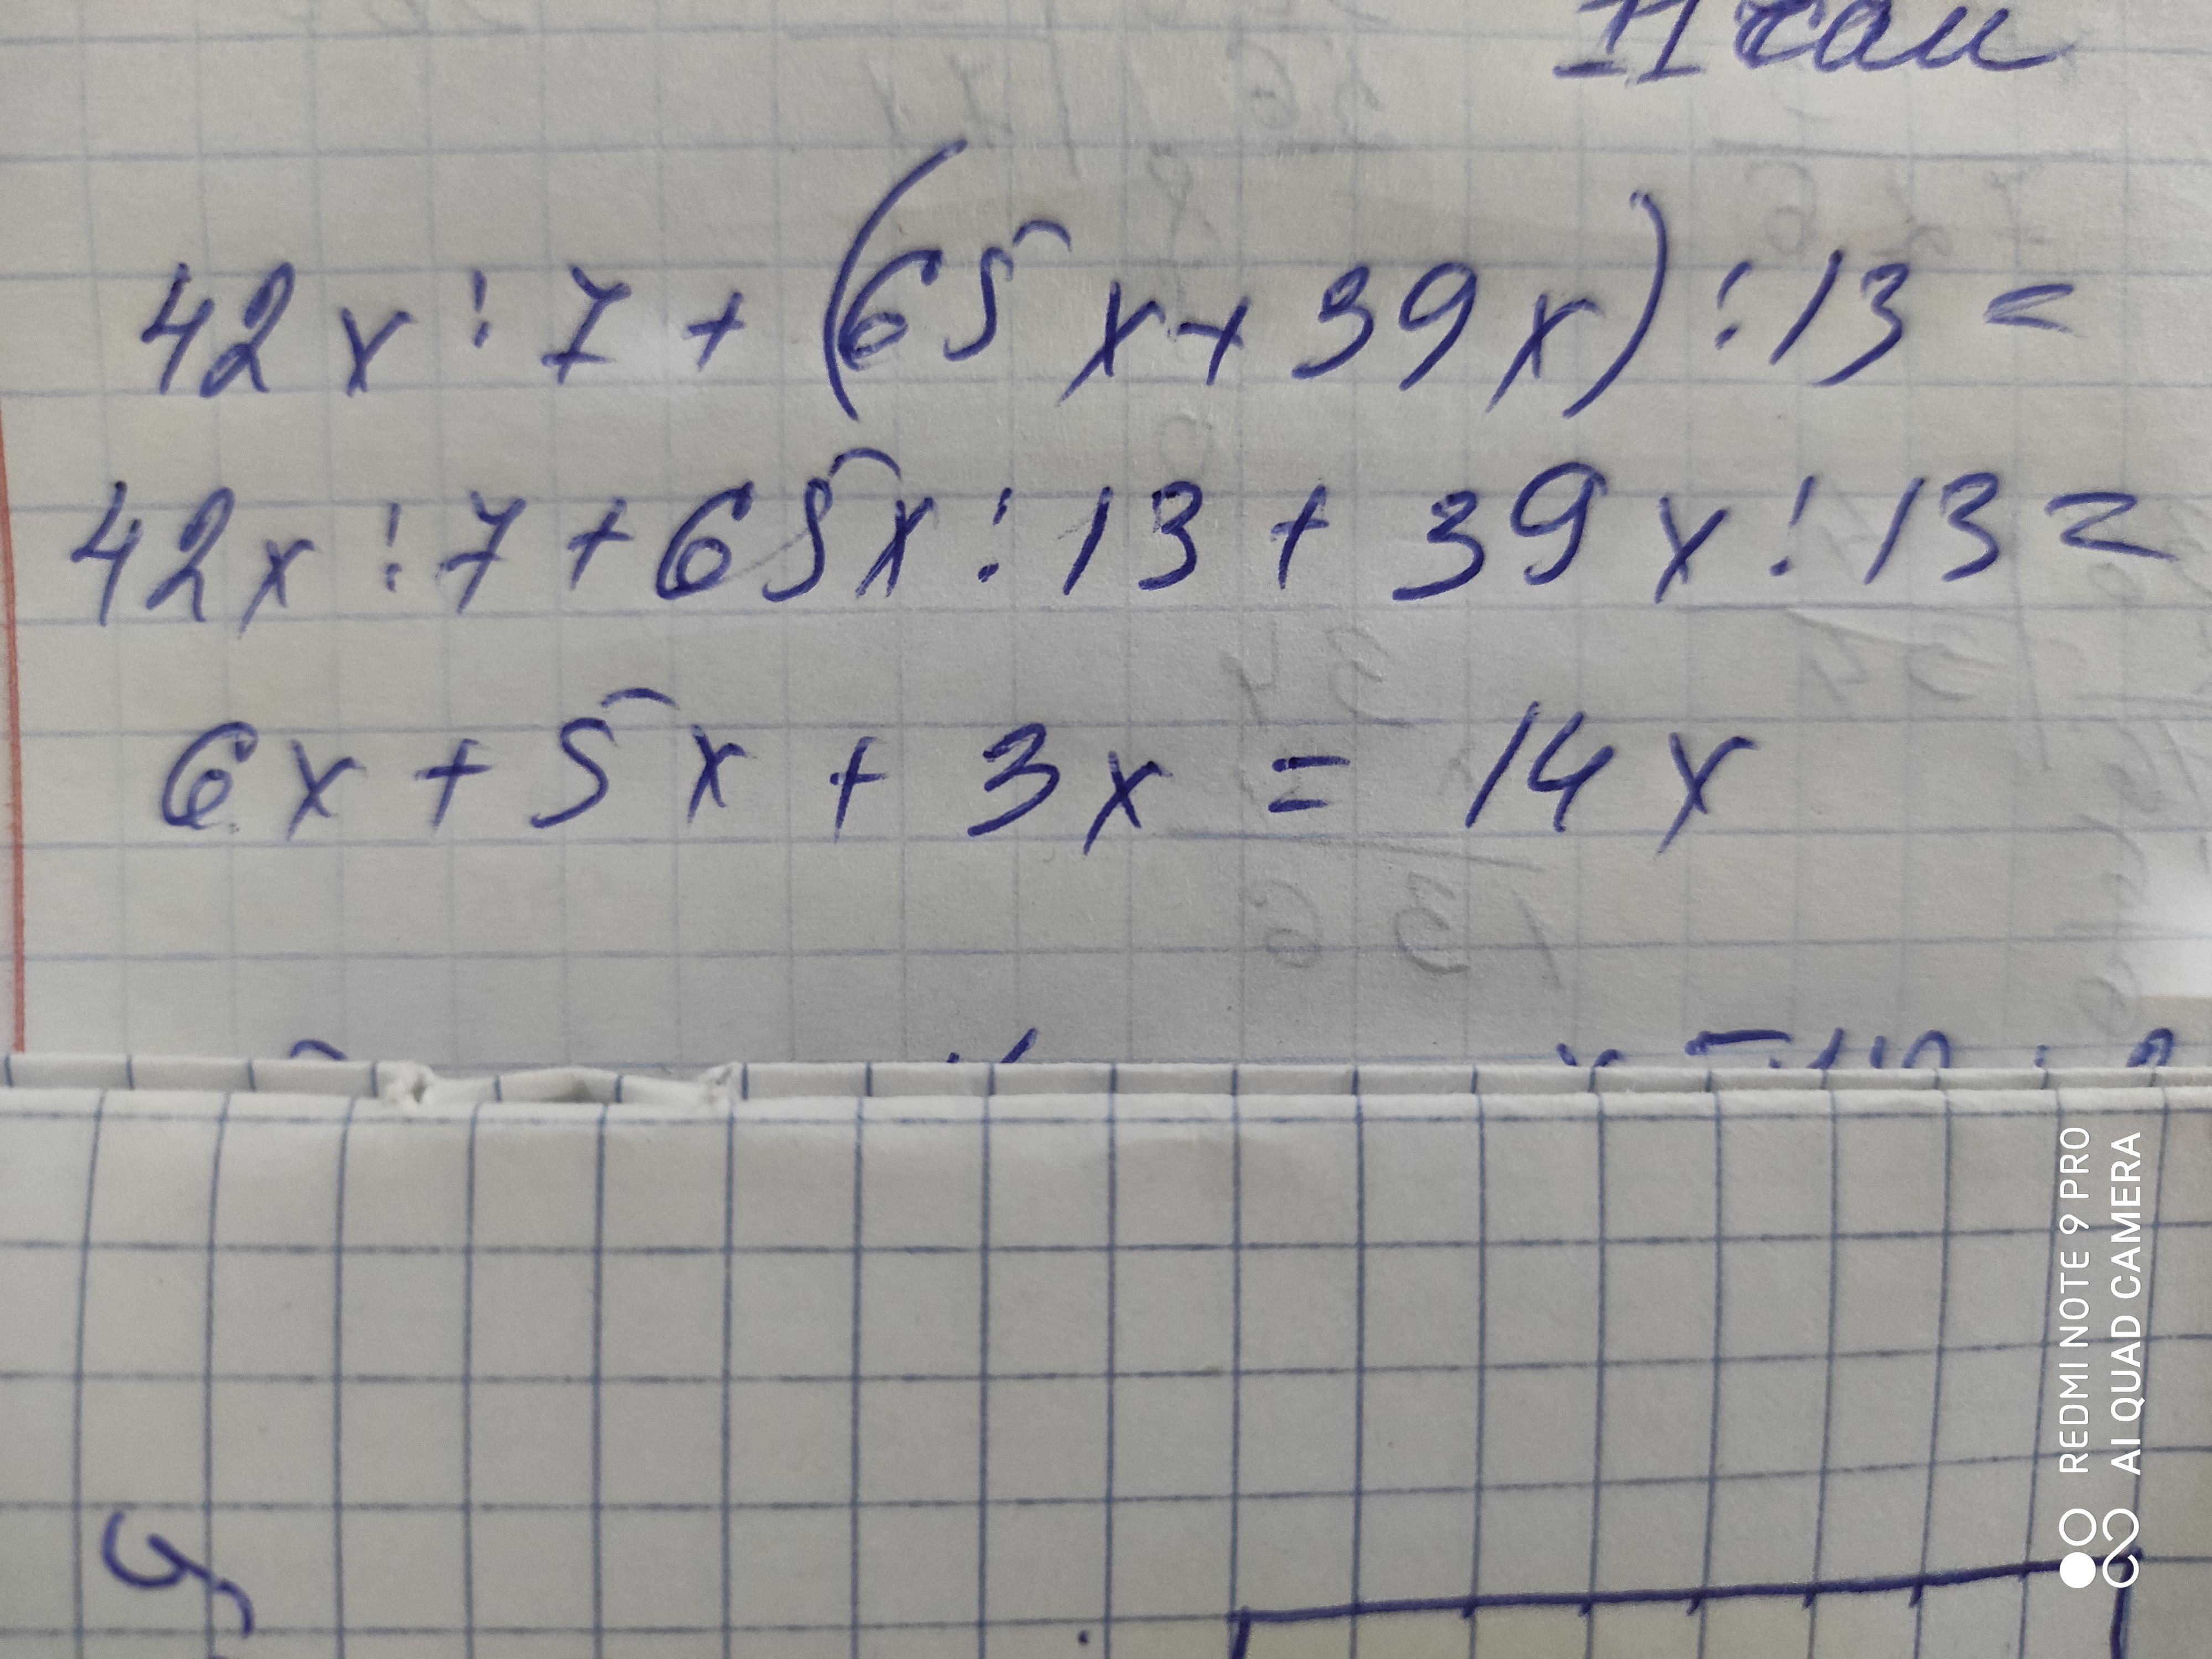 42x : 7 + (65x + 39x) : 13 =
42x : 7 + 65x : 13 + 39x : 13 =
6x + 5x + 3x = 14x
REDMI NOTE 9 PRO
AI QUAD CAMERA